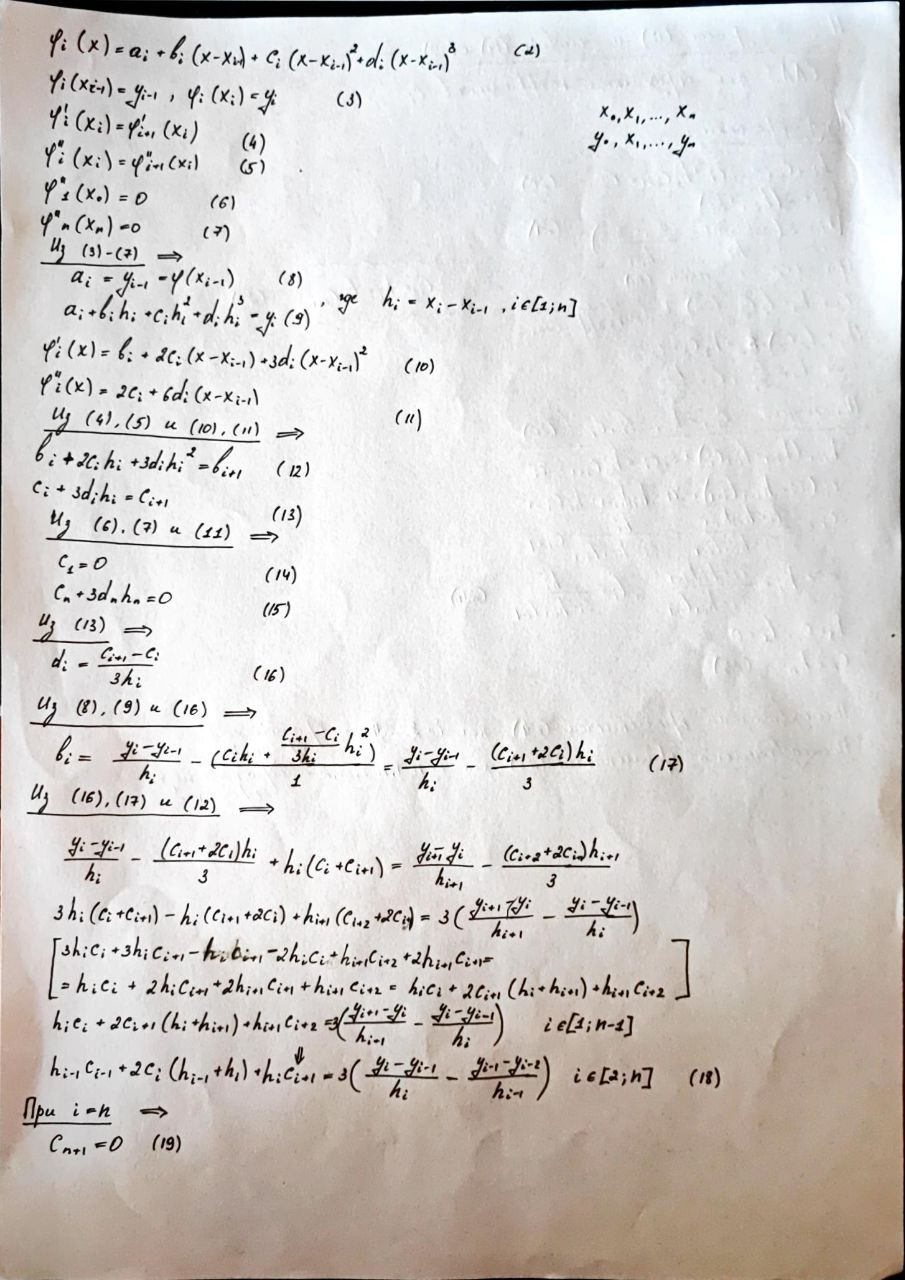 φᵢ(x) = aᵢ + bᵢ(x-xᵢ₋₁) + cᵢ(x-xᵢ₋₁)² + dᵢ(x-xᵢ₋₁)³ (2)
φᵢ(xᵢ₋₁) = yᵢ₋₁, φᵢ(xᵢ) = yᵢ (3)
x₀, x₁, ..., xₙ
φ'ᵢ(xᵢ) = φ'ᵢ₊₁(xᵢ) (4)
y₀, x₁, ..., yₙ
φ''ᵢ(xᵢ) = φ''ᵢ₊₁(xᵢ) (5)
φ''₁(x₀) = 0 (6)
φ''ₙ(xₙ) = 0 (7)
Из (3)-(7) ⟹
aᵢ = yᵢ₋₁ = φ(xᵢ₋₁) (8)
aᵢ + bᵢhᵢ + cᵢhᵢ² + dᵢhᵢ³ = yᵢ (9), где hᵢ = xᵢ - xᵢ₋₁, i∈[1;n]
φ'ᵢ(x) = bᵢ + 2cᵢ(x-xᵢ₋₁) + 3dᵢ(x-xᵢ₋₁)² (10)
φ''ᵢ(x) = 2cᵢ + 6dᵢ(x-xᵢ₋₁) (11)
Из (4), (5) и (10), (11) ⟹
bᵢ + 2cᵢhᵢ + 3dᵢhᵢ² = bᵢ₊₁ (12)
cᵢ + 3dᵢhᵢ = cᵢ₊₁ (13)
Из (6), (7) и (11) ⟹
c₁ = 0 (14)
cₙ + 3dₙhₙ = 0 (15)
Из (13) ⟹
dᵢ = (cᵢ₊₁ - cᵢ)/(3hᵢ) (16)
Из (8), (9) и (16) ⟹
bᵢ = (yᵢ - yᵢ₋₁)/hᵢ - (cᵢhᵢ + (cᵢ₊₁ - cᵢ)/(3hᵢ) hᵢ²)/1 = (yᵢ - yᵢ₋₁)/hᵢ - (cᵢ₊₁ + 2cᵢ)hᵢ/3 (17)
Из (16), (17) и (12) ⟹
(yᵢ - yᵢ₋₁)/hᵢ - (cᵢ₊₁ + 2cᵢ)hᵢ/3 + hᵢ(cᵢ + cᵢ₊₁) = (yᵢ₊₁ - yᵢ)/hᵢ₊₁ - (cᵢ₊₂ + 2cᵢ₊₁)hᵢ₊₁/3
3hᵢ(cᵢ + cᵢ₊₁) - hᵢ(cᵢ₊₁ + 2cᵢ) + hᵢ₊₁(cᵢ₊₂ + 2cᵢ₊₁) = 3((yᵢ₊₁ - yᵢ)/hᵢ₊₁ - (yᵢ - yᵢ₋₁)/hᵢ)
[3hᵢcᵢ + 3hᵢcᵢ₊₁ - hᵢcᵢ₊₁ - 2hᵢcᵢ + hᵢ₊₁cᵢ₊₂ + 2hᵢ₊₁cᵢ₊₁ =
= hᵢcᵢ + 2hᵢcᵢ₊₁ + 2hᵢ₊₁cᵢ₊₁ + hᵢ₊₁cᵢ₊₂ = hᵢcᵢ + 2cᵢ₊₁(hᵢ + hᵢ₊₁) + hᵢ₊₁cᵢ₊₂]
hᵢcᵢ + 2cᵢ₊₁(hᵢ + hᵢ₊₁) + hᵢ₊₁cᵢ₊₂ = 3((yᵢ₊₁ - yᵢ)/hᵢ₊₁ - (yᵢ - yᵢ₋₁)/hᵢ) i∈[1;n-1]
⇓
hᵢ₋₁cᵢ₋₁ + 2cᵢ(hᵢ₋₁ + hᵢ) + hᵢcᵢ₊₁ = 3((yᵢ - yᵢ₋₁)/hᵢ - (yᵢ₋₁ - yᵢ₋₂)/hᵢ₋₁) i∈[2;n] (18)
При i=n ⟹
cₙ₊₁ = 0 (19)